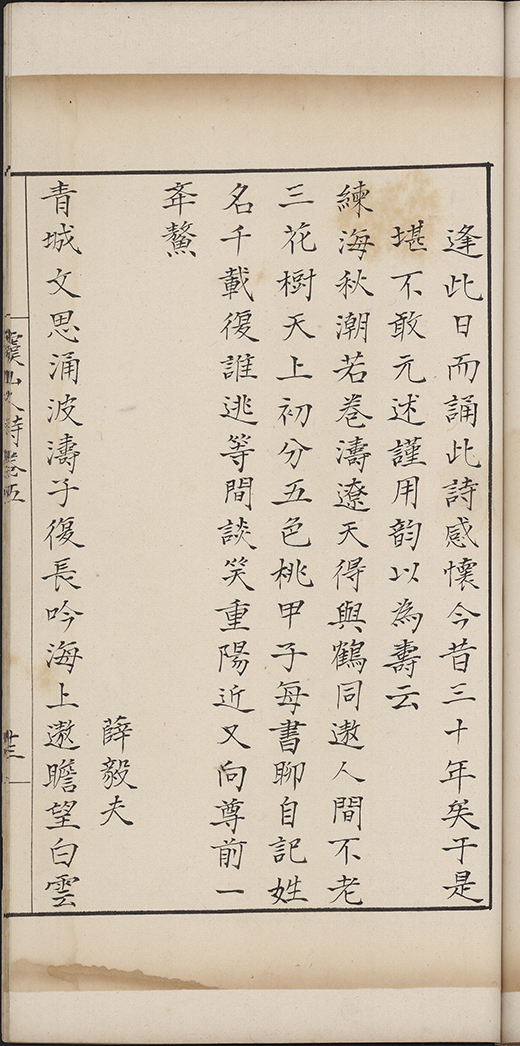 逢此日而誦此詩感懷今昔三十年矣于是
堪不敢元述謹用韵以為壽云
練海秋潮若卷濤遼天得與鶴同遨人間不老
三花樹天上初分五色桃甲子每書聊自記姓
名千載復誰逃等閒談笑重陽近又向尊前一
奔鰲
薛毅夫
青城文思涌波濤子復長吟海上遨瞻望白雲
人詩卷五
廿三